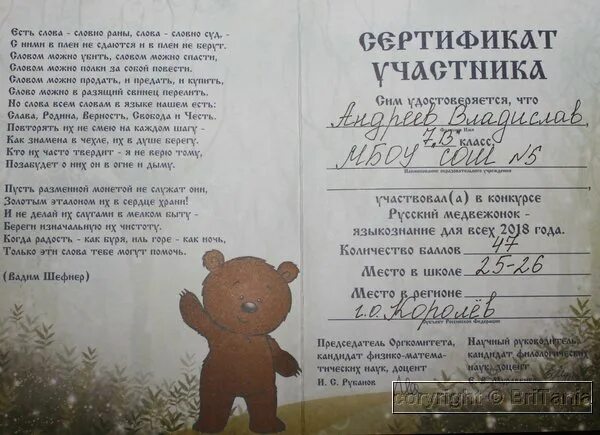 Есть слова - словно раны, слова - словно суд, -
С ними в плен не сдаются и в плен не берут.
Словом можно убить, словом можно спасти,
Словом можно полки за собой повести.
Словом можно продать, и предать, и купить,
Слово можно в разящий свинец перелить.
Но слова всем словам в языке нашем есть:
Слава, Родина, Верность, Свобода и Честь.
Повторять их не смею на каждом шагу -
Как знамена в чехле, их в душе берегу.
Кто их часто твердит - я не верю тому,
Позабудет о них он в огне и дыму.
Пусть разменной монетой не служат они,
Золотым эталоном их в сердце храни!
И не делай их слугами в мелком быту -
Береги изначальную их чистоту.
Когда радость - как буря, иль горе - как ночь,
Только эти слова тебе могут помочь.
(Вадим Шефнер)
СЕРТИФИКАТ
УЧАСТНИКА
Сим удостоверяется, что
Андреев Владислав,
7В класс
МБОУ СОШ №5
Наименование образовательного учреждения
участвовал(а) в конкурсе
Русский медвежонок -
языкознание для всех 2018 года.
Количество баллов 47
Место в школе 25-26
Место в регионе
г.о. Королёв
Субъект Российской Федерации
Председатель Оргкомитета,
кандидат физико-матема-
тических наук, доцент
И. С. Рубанов
Научный руководитель,
кандидат филологических
наук, доцент
copyright © BriTania